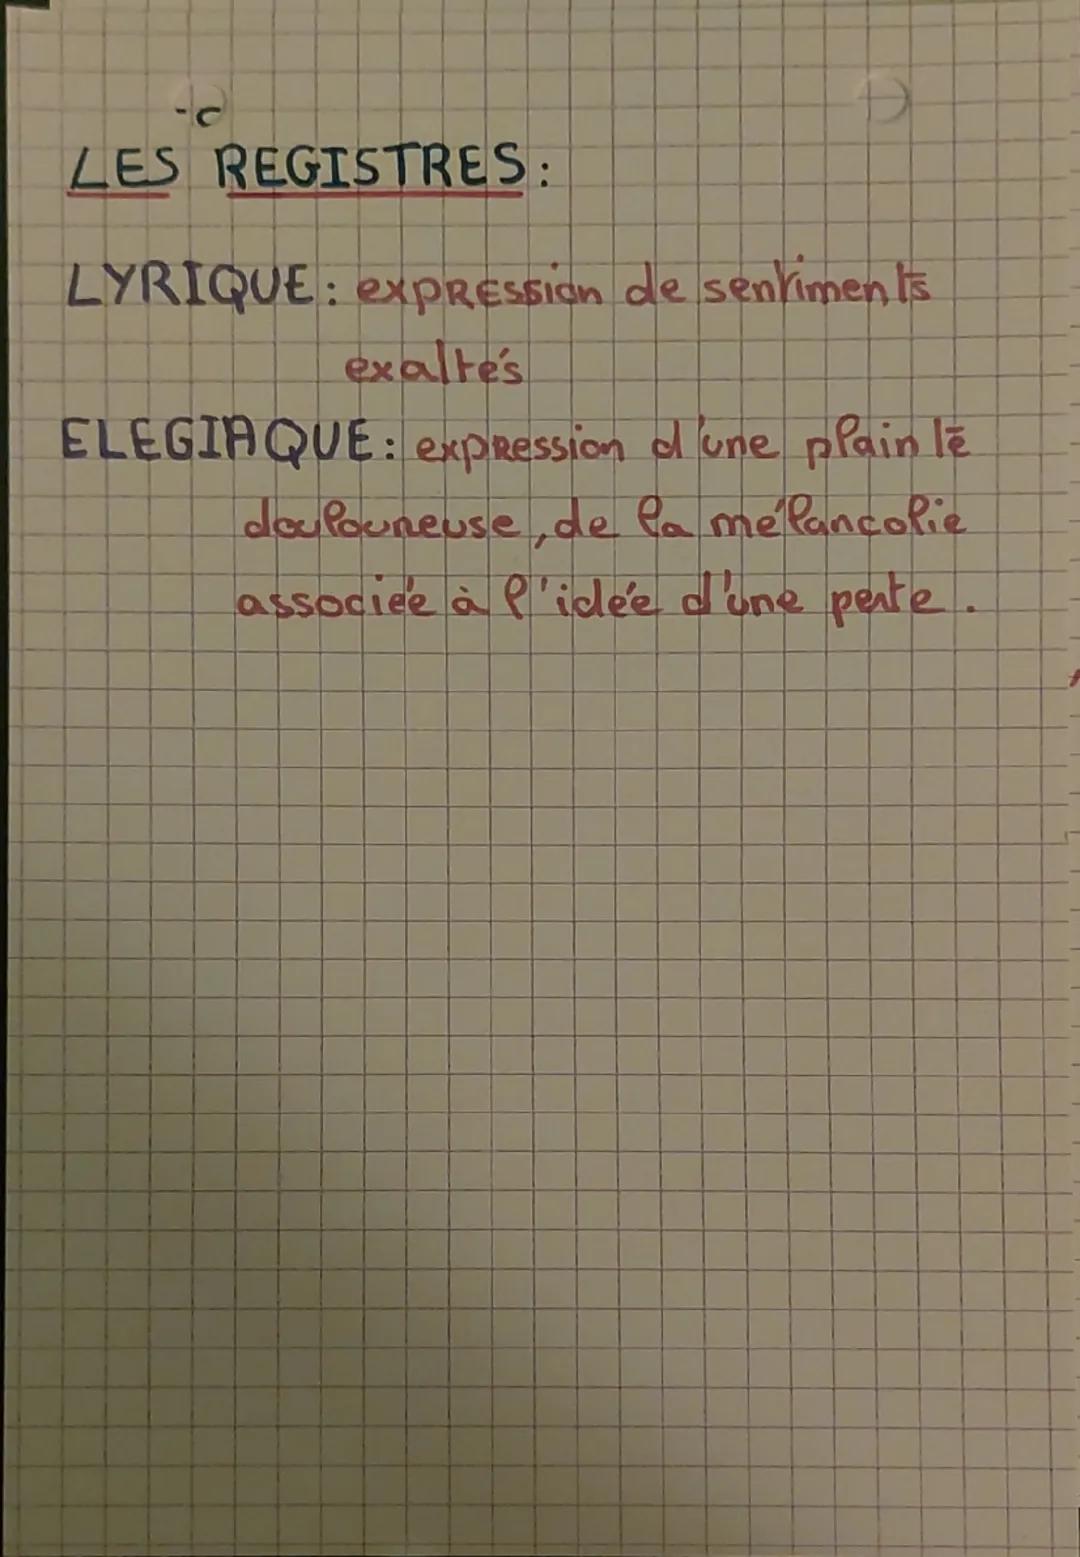 LES REGISTRES:
LYRIQUE: expression de sentiments
exaltés
ELEGIAQUE: expression d'une plainte
douloureuse, de la mélancolie
associée à l'idée d'une perte.